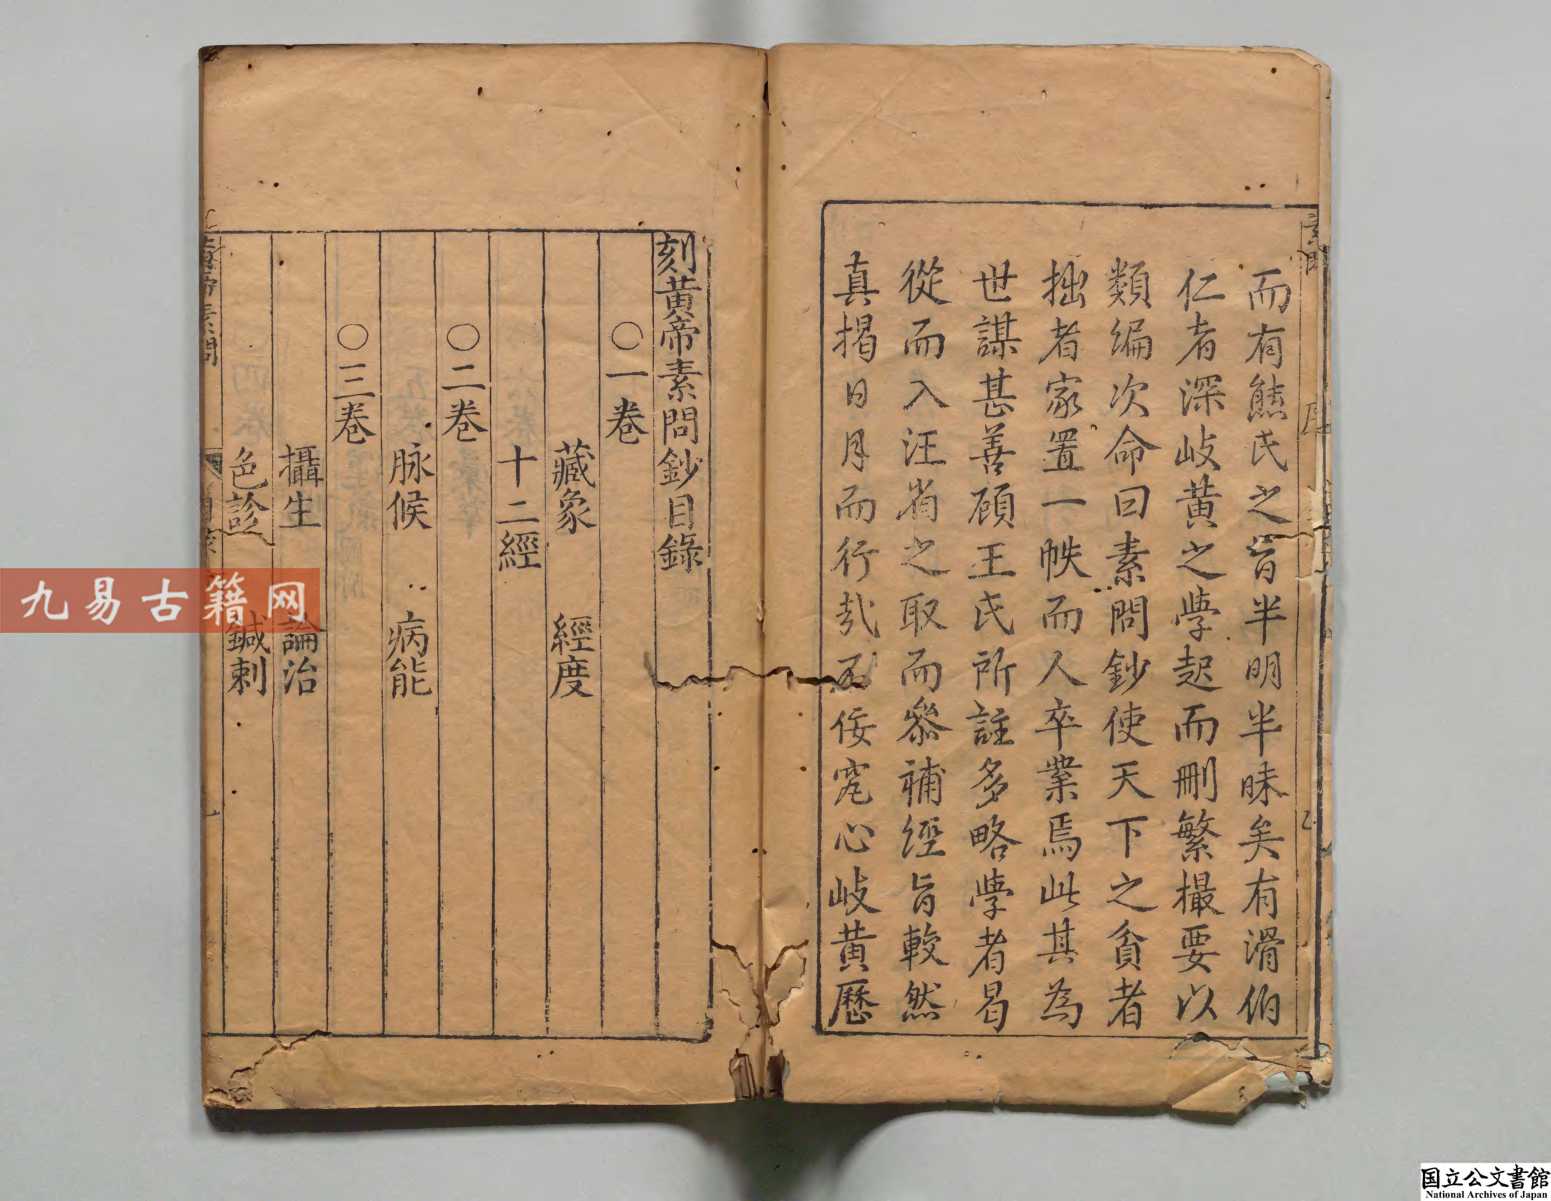 而有熊氏之旨半明半昧矣有滑伯
仁者深岐黄之學起而刪繁撮要以
類編次命曰素問鈔使天下之貧者
拙者家置一帙而人卒業焉此其為
世謀甚善顧王氏所註多略學者曷
從而入汪省之取而叅補經旨較然
真揭日月而行哉不佞究心岐黄歷
刻黃帝素問鈔目錄
〇一卷
藏象 經度
十二經
〇二卷
脉候 病能
〇三卷
攝生 論治
色診 鍼刺
九易古籍网
国立公文書館
National Archives of Japan